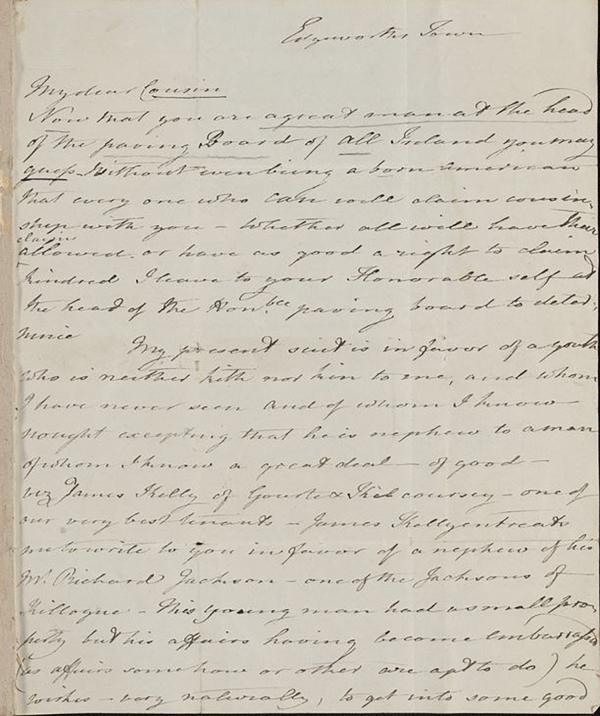 Edgeworths Town
My dear Cousin
Now that you are a great man at the head
of the paving Board of all Ireland you may
guess without even being a born American
that every one who can will claim cousin
ship with you – Whether all will have their
claim
allowed or have as good a right to claim
kindred I leave to your Honorable self at
the head of the Honble paving board to deter
mine
My present suit is in favor of a youth
who is neither kith nor kin to me, and whom
I have never seen and of whom I know
nought excepting that he is nephew to a man
of whom I know a great deal – of good –
viz James Kelly of & – one of
our very best tenants – James Kelly entreats
me to write to you in favor of a nephew of his
Mr. Richard Jackson – one of the Jacksons of
– This young man had a small pro
perty but his affairs having become embarrassed
(as affairs somehow or other are apt to do) he
wishes – very naturally, to get into some good